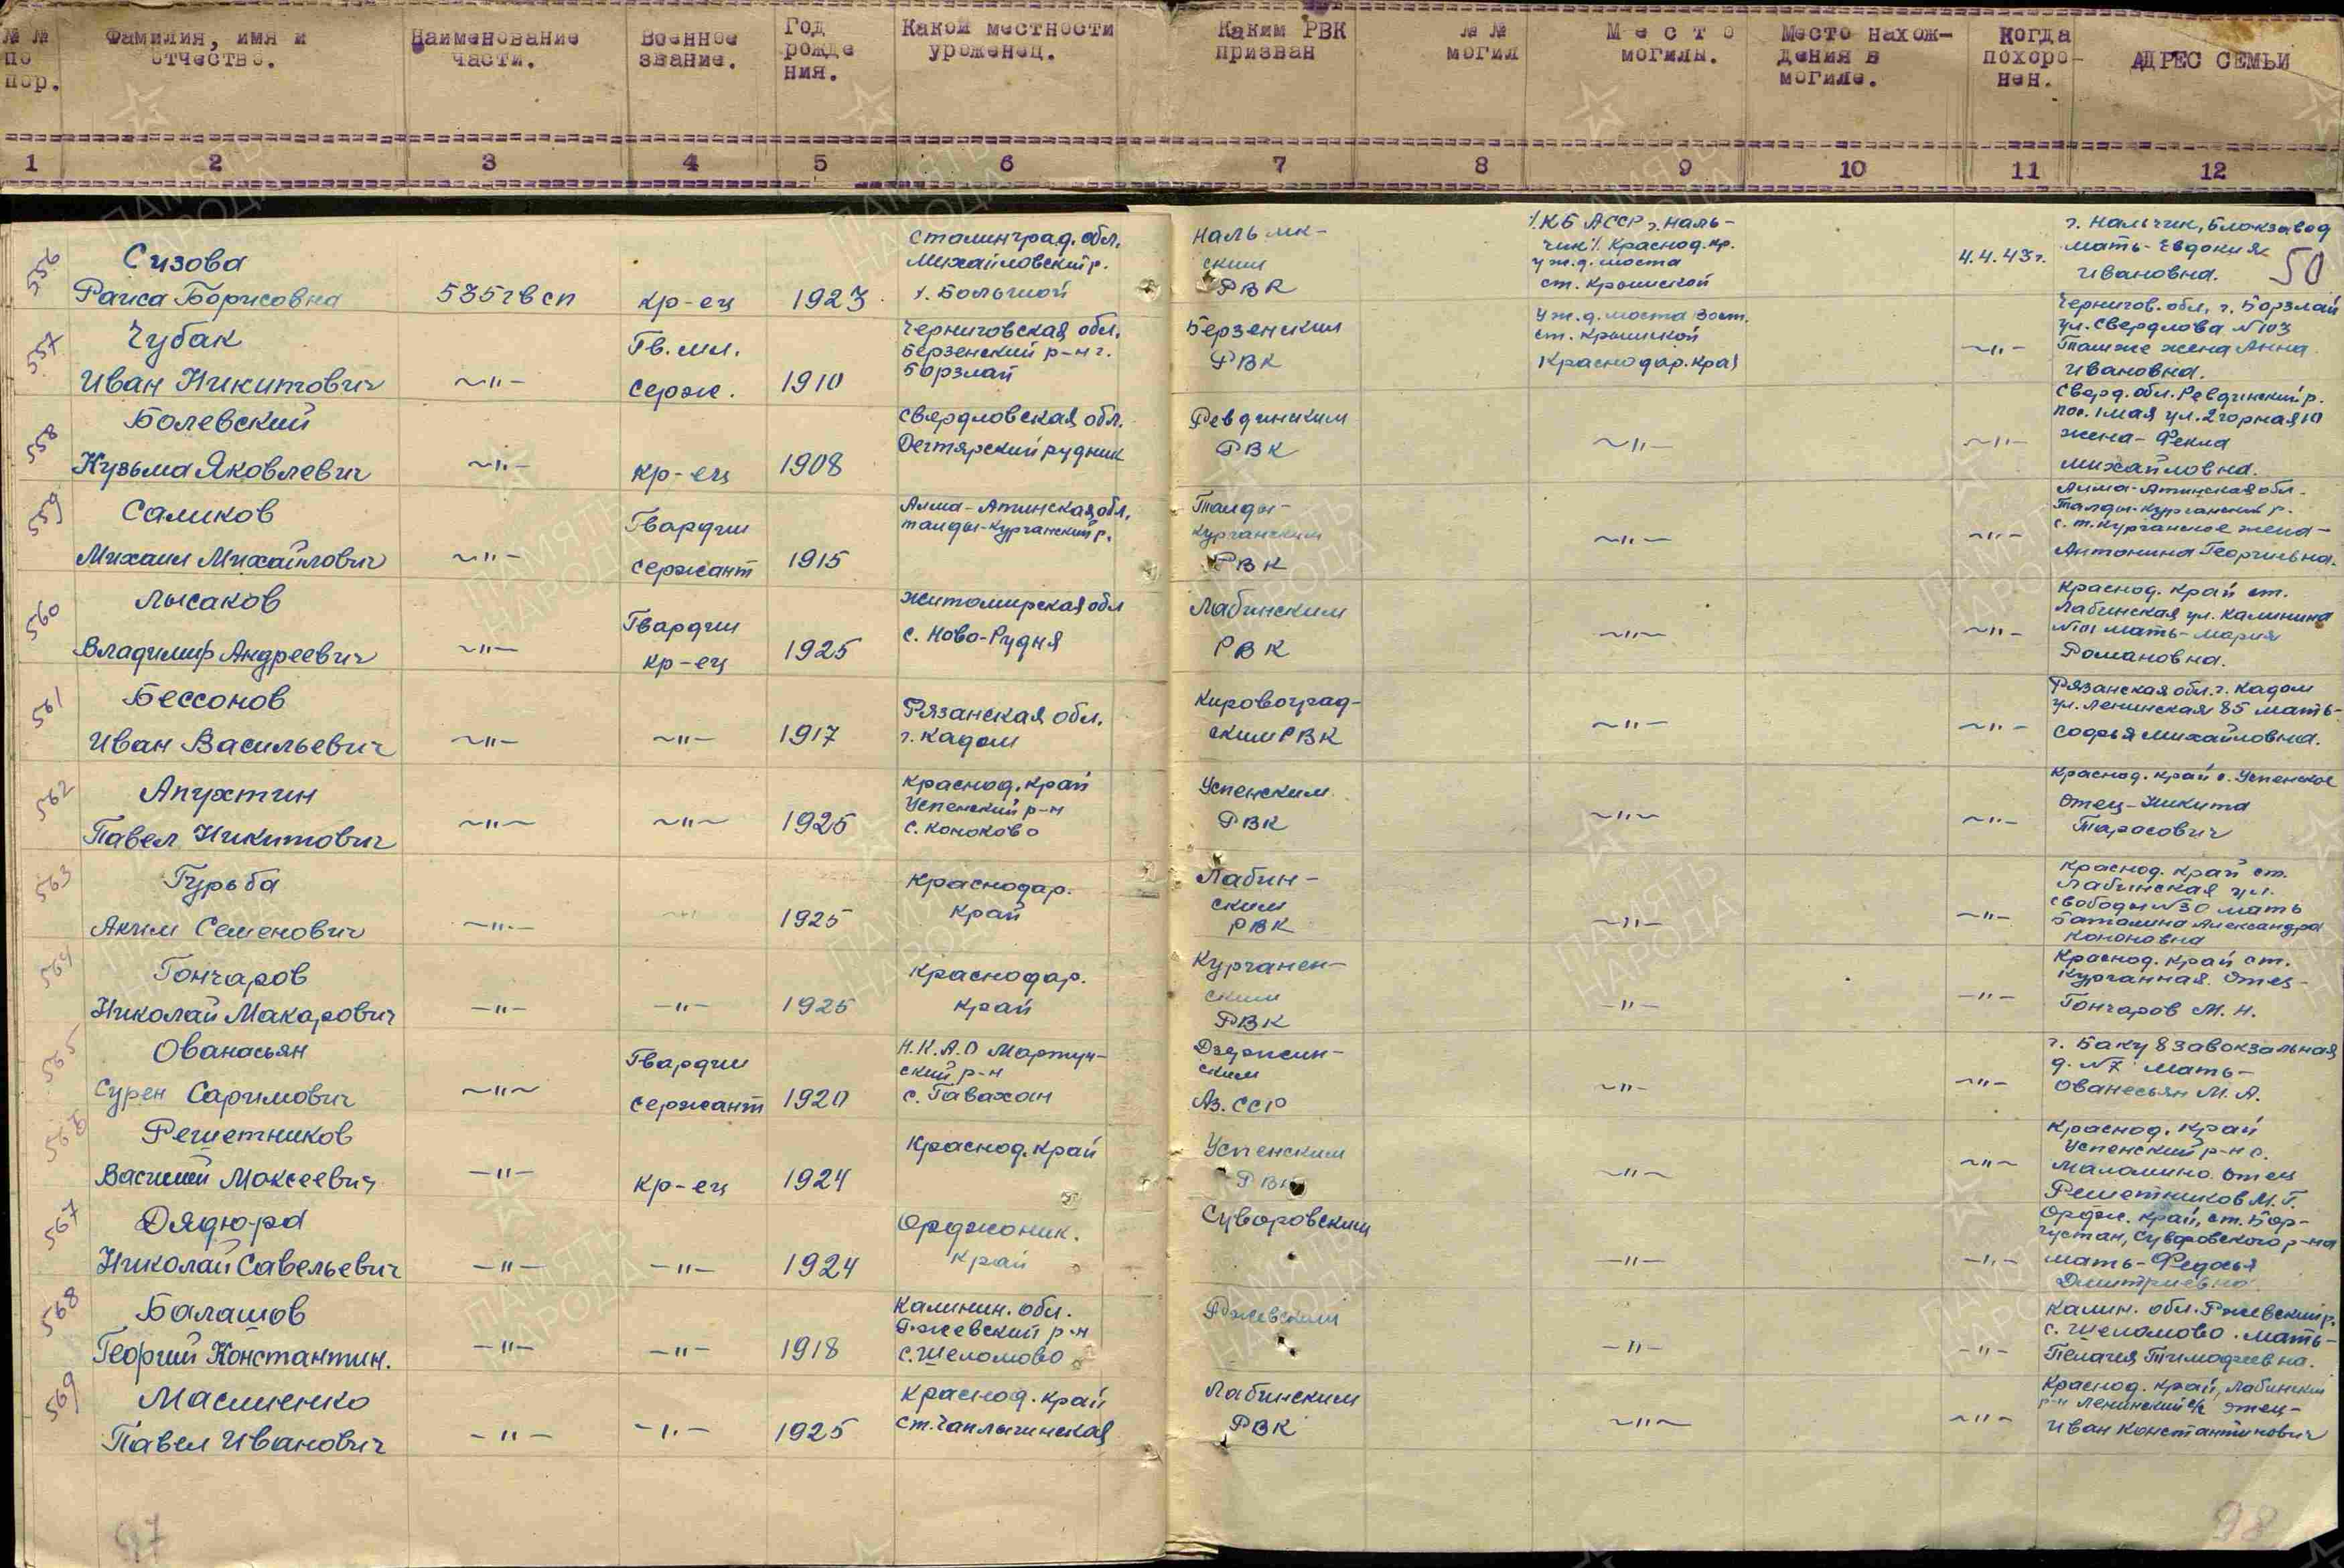 № № по пор.
Фамилия, имя и отчество.
Наименование части.
Военное звание.
Год рожде ния.
Какой местности уроженец.
Каким РВК призван
№ № могил
Место могилы.
Место нахож-дения в могиле.
Когда похоро-нен.
АДРЕС СЕМЬИ
1 2 3 4 5 6 7 8 9 10 11 12
50
556
Сизова
Раиса Борисовна
535 гв сп
кр-ец
1923
Сталинград. обл.
Михайловский р.
х. Большой
Нальчик-
ским
РВК
/КБ АССР г. Наль-
чик/. Краснод. кр.
у ж.д. моста
ст. Крымской
4.4.43г.
г. Нальчик, Блокзавод
мать-Евдокия
Ивановна.
557
Чубак
Иван Никитович
~"-
Гв. мл.
серж.
1910
Черниговская обл.
Берзенский р-н г.
Борзлай
Берзенским
РВК
У ж.д. моста вост.
ст. Крымской
Краснодар. края
~"-
Чернигов. обл. г. Борзлай
ул. Свердлова №103
Там же жена Анна
Ивановна.
558
Болевский
Кузьма Яковлевич
~"-
кр-ец
1908
Свердловская обл.
Дегтярский рудник
Ревдинским
РВК
~"-
~"-
Сверд. обл. Ревдинский р.
пос. 1 мая ул. 2 горная 10
жена-Фекла
Михайловна.
559
Саликов
Михаил Михайлович
~"-
Гвардии
сержант
1915
Алма-Атинская обл.
Талды-Курганский р.
Талды-
Курганским
РВК
~"-
~"-
Алма-Атинская обл.
Талды-Курганский р.
с. т. Курганское жена-
Антонина Георгиевна.
560
Лысаков
Владимир Андреевич
~"-
Гвардии
кр-ец
1925
Житомирская обл
с. Ново-Рудня
Лабинским
РВК
~"~
~"-
Краснод. край ст.
Лабинская ул. Калинина
№101 мать-Мария
Романовна.
561
Бессонов
Иван Васильевич
~"-
~"-
1917
Рязанская обл.
г. Кадом
Кировоград-
ским РВК
~"-
~"-
Рязанская обл. г. Кадом
ул. Ленинская 85 мать-
Софья Михайловна.
562
Апухтин
Павел Никитович
~"~
~"~
1925
Краснод. край
Успенский р-н
с. Коноково
Успенским
РВК
~"~
~"-
Краснод. край с. Успенское
Отец-Никита
Тарасович
563
Гурьба
Аким Семенович
~"-
~"
1925
Краснодар.
край
Лабин-
ским
РВК
~"-
~"-
Краснод. край ст.
Лабинская ул.
Свободы №30 мать
Баталина Александра
Кононовна
564
Гончаров
Николай Макарович
-"-
-"-
1925
Краснодар.
край
Курганен-
ским
РВК
-"-
-"-
Краснод. край ст.
Курганная. Отец-
Гончаров М. Н.
565
Ованасьян
Сурен Саримович
~"~
Гвардии
сержант
1920
Н.К.А.О Мартун-
ский р-н
с. Гавахан
Дзержин-
ским
Аз. ССР
~"-
~"-
г. Баку 8 Завокзальная
д. №7 мать-
Ованесьян М. А.
566
Решетников
Василий Моксеевич
-"-
кр-ец
1924
Краснод. край
Успенским
РВК
~"~
~"~
Краснод. край
Успенский р-н с.
Маламино. Отец
Решетников М. Г.
567
Дядюра
Николай Савельевич
-"-
-"-
1924
Орджоник.
край
Суворовским
-"-
-"-
Ордж. край, ст. Бор-
густан, Суворовского р-на
мать-Федосья
Дмитриевна
568
Балашов
Георгий Константин.
-"-
-"-
1918
Калинин. обл.
Ржевский р-н
с. Шеломово
Ржевским
-"-
-"-
Калин. обл. Ржевский р.
с. Шеломово. Мать-
Пелагея Тимофеевна.
569
Маслиенко
Павел Иванович
-"-
-"-
1925
Краснод. край
ст. Чамлыгинская
Лабинским
РВК
~"~
~"-
Краснод. край, Лабинский
р-н Ленинский с/с отец-
Иван Константинович
97
98
ПАМЯТЬ НАРОДА